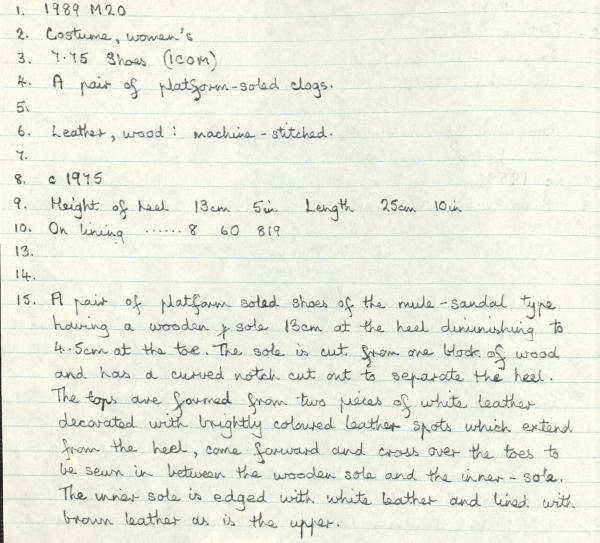 1. 1989 M20
2. Costume, women's
3. 7.75 Shoes (ICOM)
4. A pair of platform-soled clogs.
5.
6. Leather, wood: machine-stitched.
7.
8. c 1975
9. Height of heel 13cm 5in Length 25cm 10in
10. On lining ...... 8 60 819
13.
14.
15. A pair of platform soled shoes of the mule-sandal type
having a wooden sole 13cm at the heel diminishing to
4.5cm at the toe. The sole is cut from one block of wood
and has a curved notch cut out to separate the heel.
The tops are formed from two pieces of white leather
decorated with brightly coloured leather spots which extend
from the heel, come forward and cross over the toes to
be sewn in between the wooden sole and the inner-sole.
The inner sole is edged with white leather and lined with
brown leather as is the upper.